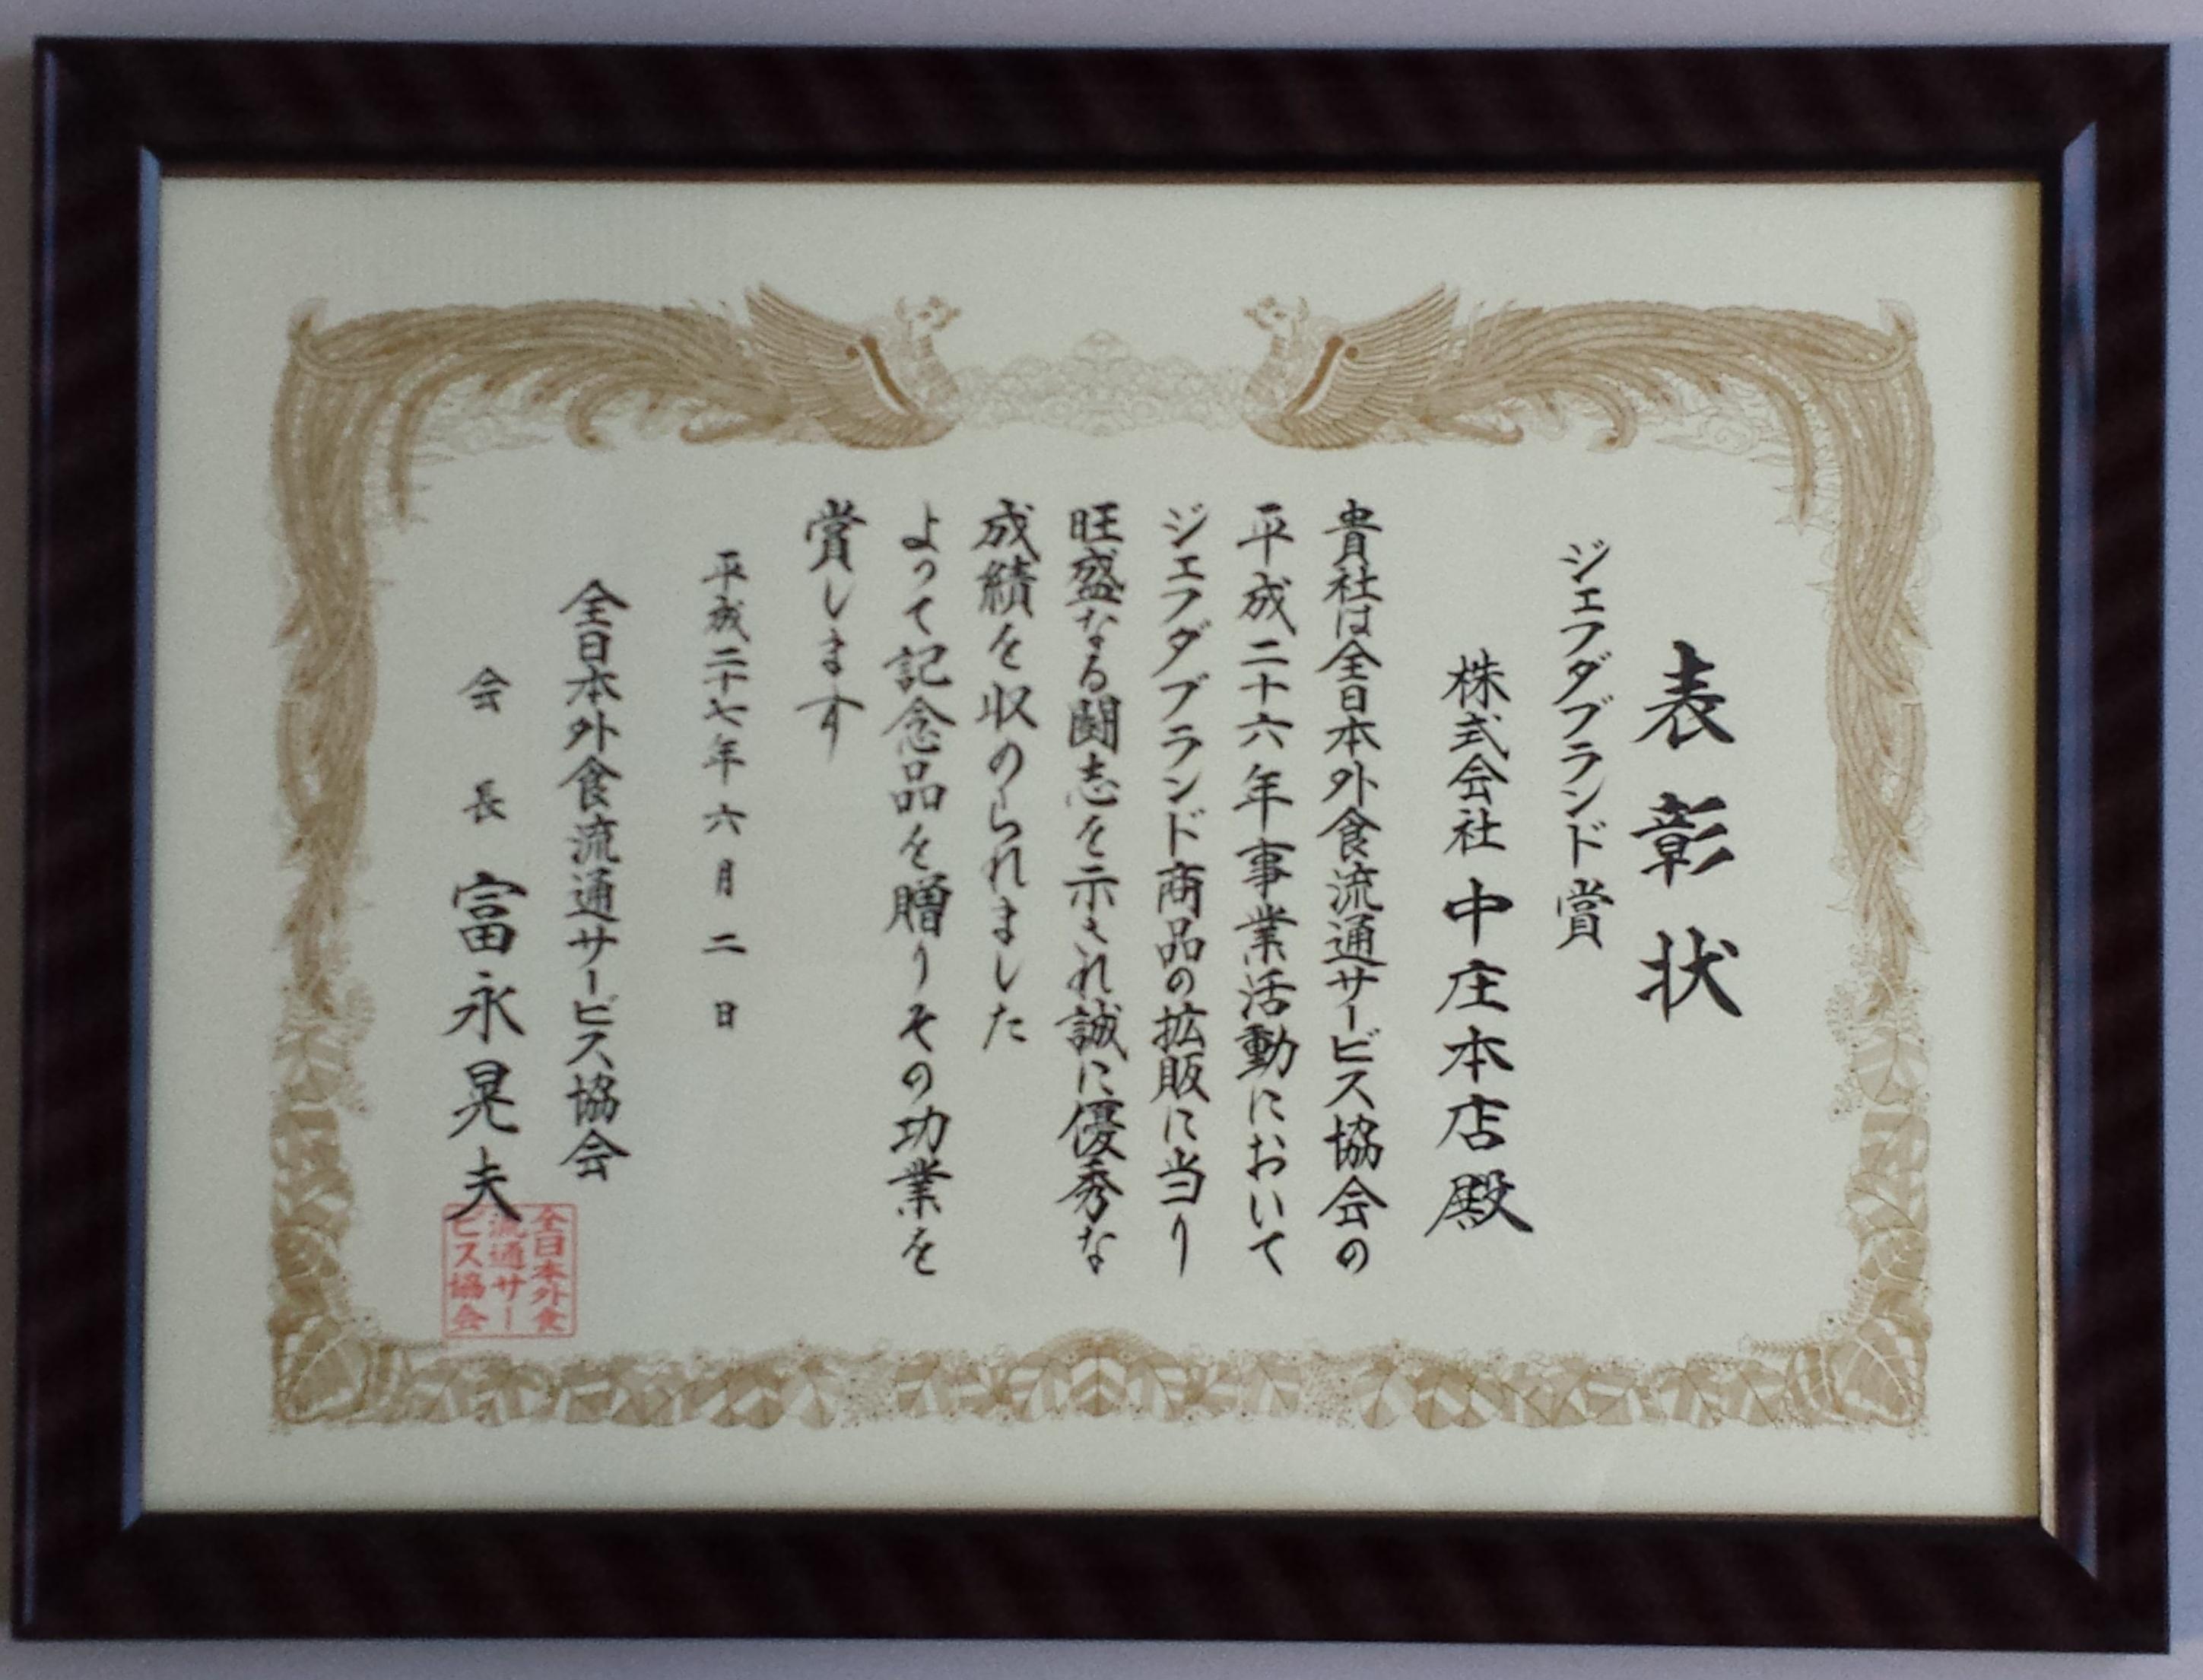 表彰状
ジェフダブランド賞
株式会社 中庄本店殿
貴社は全日本外食流通サービス協会の
平成二十六年事業活動において
ジェフダブランド商品の拡販に当り
旺盛なる闘志を示され誠に優秀な
成績を収められました
よって記念品を贈りその功業を
賞します
平成二十七年六月二日
全日本外食流通サービス協会
会長 富永晃夫
全日本外食
流通サー
ビス協会